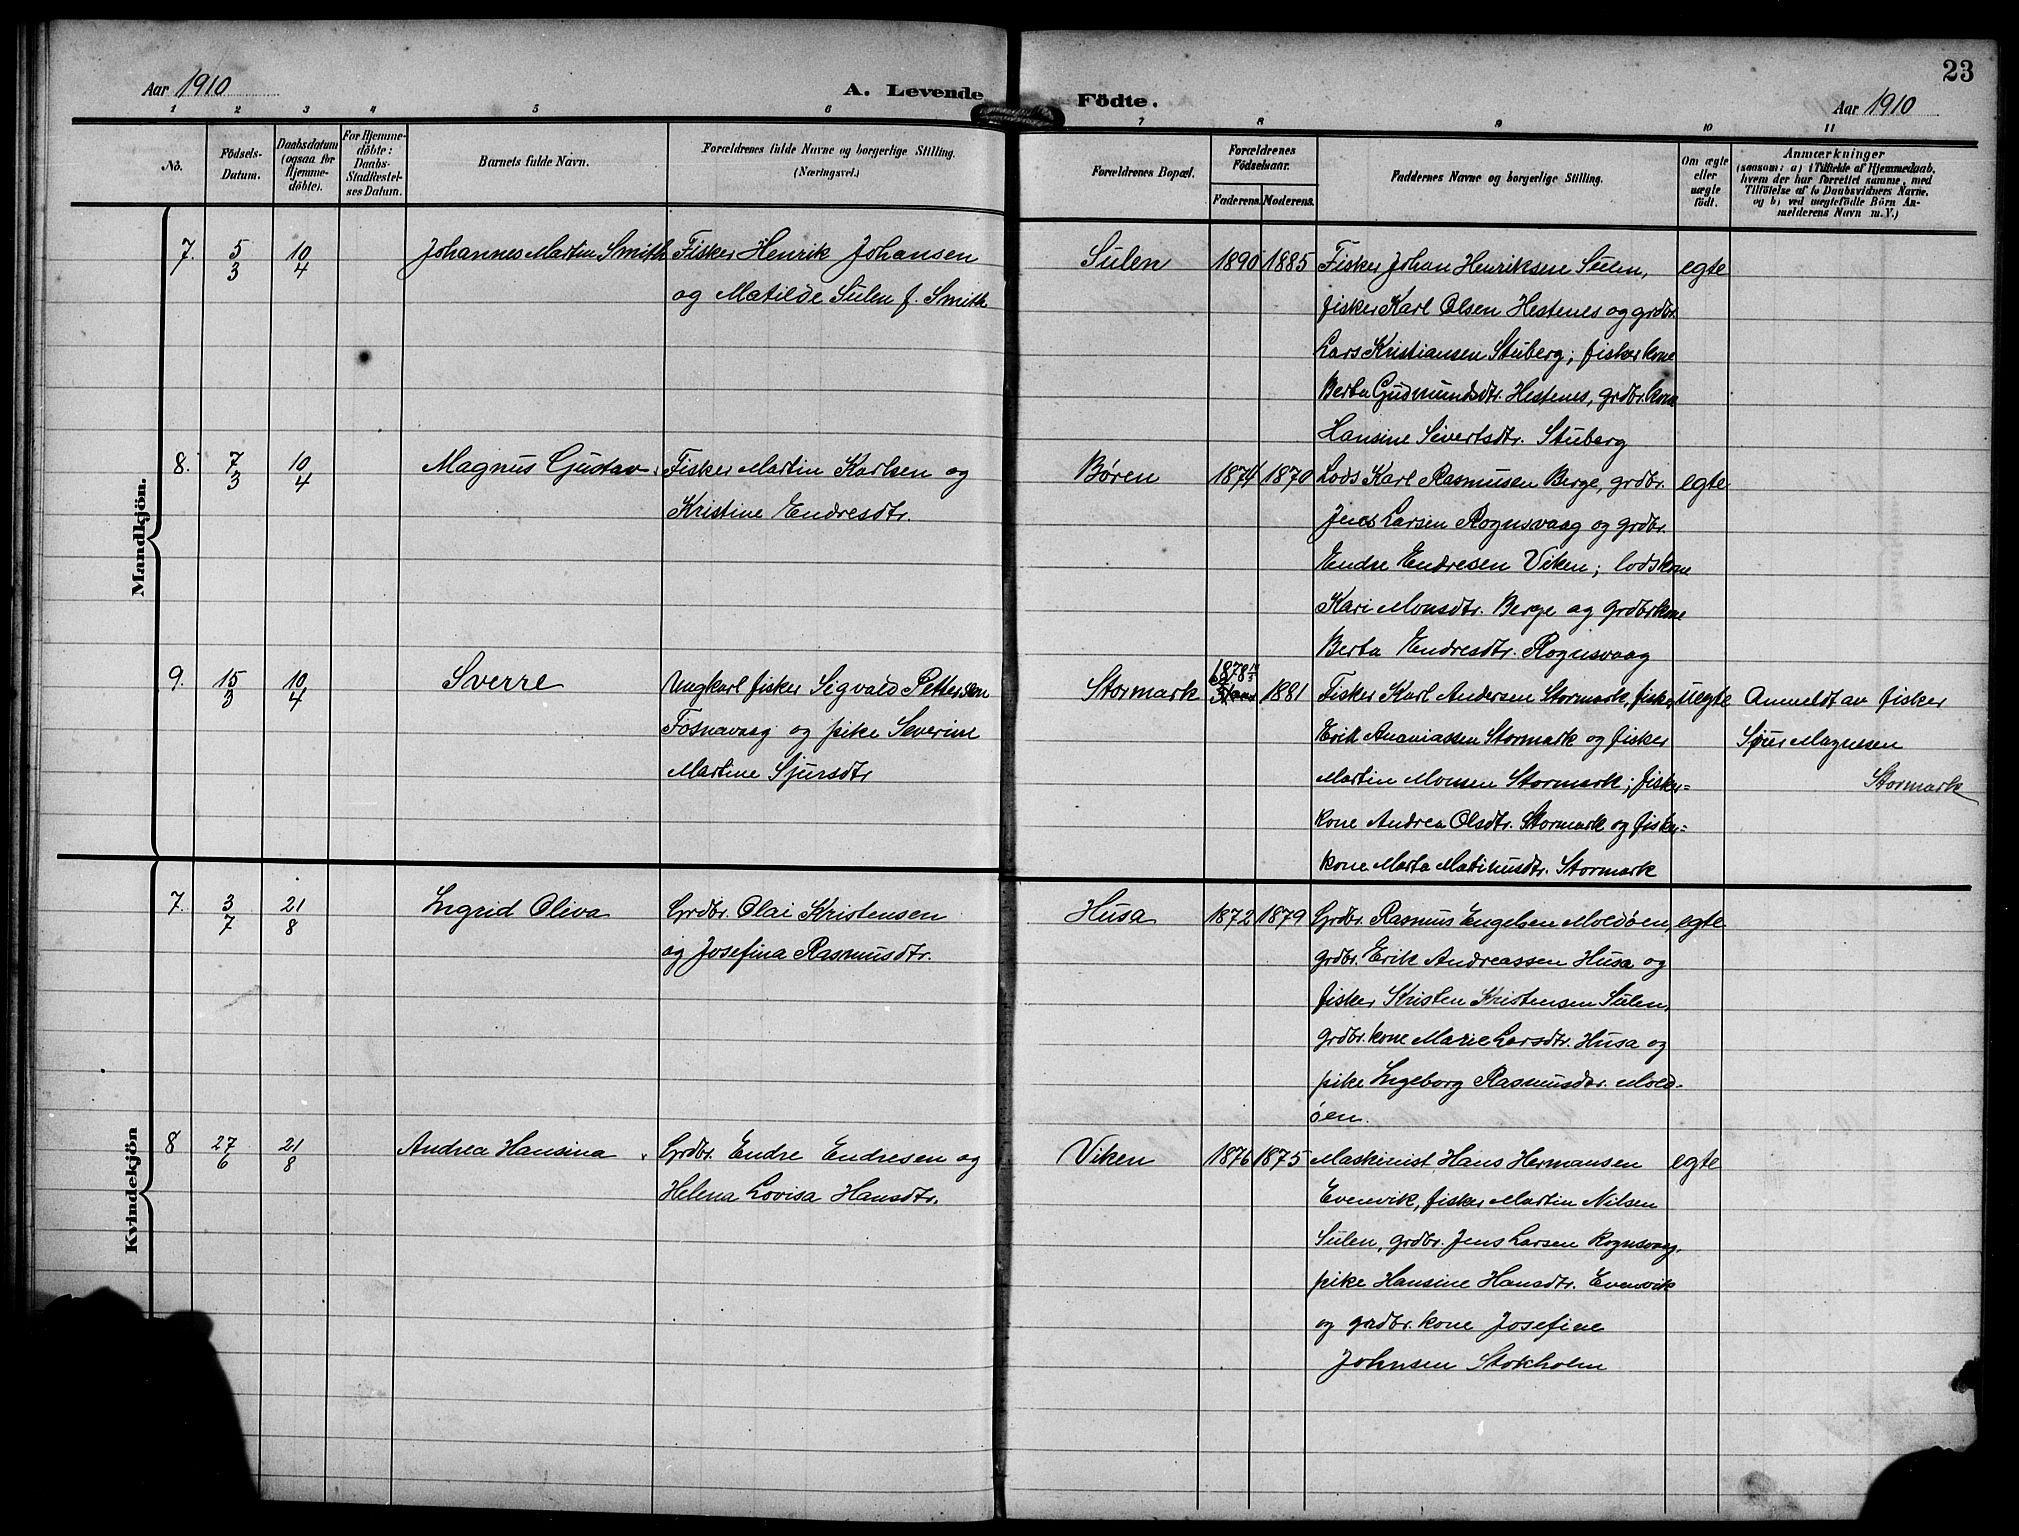 23
Aar 1910
A. Levende
Födte.
Aar 1910
1 2 3 4 5 6 7 8 9 10 11
No.
Födsels-
Datum.
Daabsdatum
(ogsaa for
Hjemme-
döbte).
For Hjemme-
döbte:
Daabs-
Stadfæstel-
ses Datum.
Barnets fulde Navn.
Forældrenes fulde Navne og borgerlige Stilling.
(Næringsvei.)
Forældrenes Bopæl.
Forældrenes
Födselsaar.
Faderens.
Moderens.
Faddernes Navne og borgerlige Stilling.
Om ægte
eller
uægte
födt.
Anmærkninger
(saasom: a) i Tilfælde af Hjemmedaab,
hvem der har forrettet samme, med
Tilföielse af to Daabsvidners Navne,
og b) ved uægtefödte Börn An-
melderens Navn m. V.)
Mandkjön.
7. 5/3 10/4 Johannes Martin Smith Fisker Henrik Johansen
og Matilde Sulen f. Smith
Sulen 1890 1885 Fisker Johan Henriksen Sulen, egte
fisker Karl Olsen Hestenes og grdbr.
Lars Kristiansen Stuberg; fisker kone
Berta Gudmundsdtr. Hestenes, grdbr. kone
Hansine Sivertsdtr. Stuberg
8. 7/3 10/4 Magnus Gustav. Fisker Martin Karlsen og
Kristine Endresdtr.
Børen 1874 1870 Lods Karl Rasmusen Berge, grdbr. egte
Jens Larsen Rognsvaag og grdbr.
Endre Endresen Viken; lodskone
Kari Monsdtr. Berge og grdbrkone
Berta Endresdtr. Rognsvaag
9. 15/3 10/4 Sverre Ungkarl fisker Sigvald Pettersen
Fosnavaag og pike Severine
Martine Sjursdtr
Stormark 1878 1881 Fisker Karl Andersen Stormark, fisker uegte Anmeldt av fisker
Erik Ananiassen Stormark og fisker
Sjur Magnusen
Martin Monsen Stormark; fisker-
Stormark
kone Andrea Olsdtr. Stormark og fisker-
kone Marta Matihusdtr. Stormark
Kvindekjön
7. 3/7 21/8 Ingrid Oliva Grdbr. Olai Kristensen
og Josefina Rasmusdtr.
Husa 1872 1879 Grdbr. Rasmus Engelsen Moldøen, egte
grdbr. Erik Andreassen Husa og
fisker Kristen Kristensen Sulen,
grdbr. kone Marie Larsdtr. Husa og
pike Ingeborg Rasmusdtr. Mold-
øen.
8 27/6 21/8 Andrea Hansina. Grdbr. Endre Endresen og
Helena Lovisa Hansdtr.
Viken 1876 1875 Maskinist Hans Hermansen egte
Evenvik, fisker Martin Nilsen
Sulen, grdbr. Jens Larsen Rognsvaag.
pike Hansine Hansdtr. Evenvik
og grdbr. kone Josefine
Johnsen Stokholm